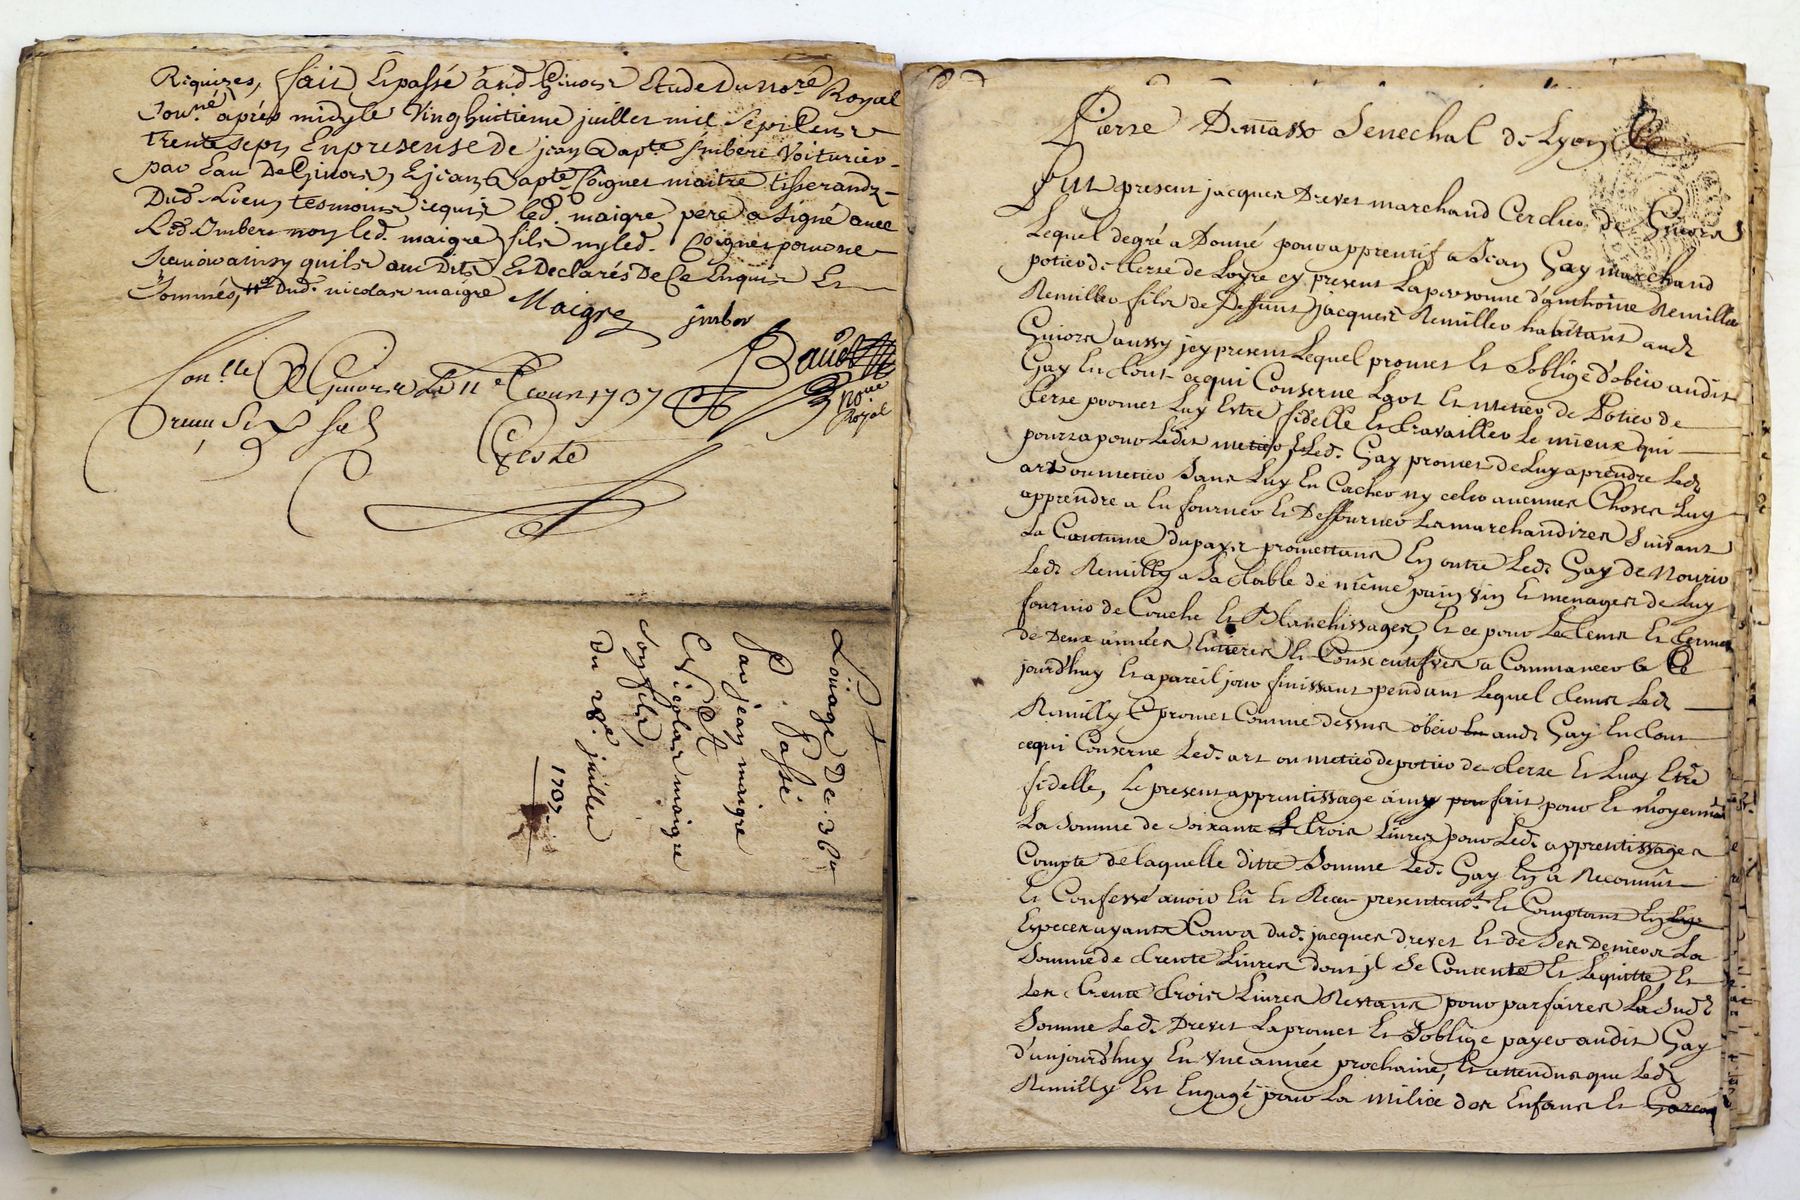 Requizes, fait et passé aud Givors Etude du no.re Royal
Sous.né après midy le vinghuitieme juillet mil Sept Cent
trente sept En presense de jean Bapt.e Imbert Voiturier
par Eau De Givors, Et jean Bapt.e Coignet maitre tisserand
Dud. Lieu, tesmoins requis led. maigre père a Signé avec
Led Imbert non led. maigre fils ny led. Coignet pour ne
Scavoir ainsy quils ont Dits Et Declarés De Ce Enquis Et
Sommés, Dud. nicolas maigre
Maigre imber
Con.lle A Givors Le 11e aoust 1737
Reçu Six sols
Baudet
no.re
Royal
Louage De
P. Passé
Par jean maigre
Et
Nicolas maigre
Son fils,
Du 28e. juillet
1737
Pierre Demasso Senechal de Lyon
Fut present jacques Drevet marchand Cerclier de Givors
Lequel degré a Donné pour apprentif a Jean Gay marchand
potier de terre de Loyre cy present La personne d'anthoine Remillier
Remillier fils de Deffunt jacques Remillier habitant aud.
Givors aussy jcy present Lequel promet Et Soblige d'obeir audit
Gay En tout ce qui Conserne Lart Et metier de Potier de
terre promet Luy Estre fidelle Et travailler Le mieux qui
pourra pour Ledit metier Et Led. Gay promet de Luy aprendre Led.
art ou metier Sans Luy En Cacher ny celer aucunes Choses Luy
apprendre a En fourner Et Deffourner Les marchandizes Suivant
La Coutume du pays promettant En outre Led. Gay de Nourir
Led. Remilly a Sa table de même pain vin Et menage et de Luy
fournir de Couche Et Blanchissages, Et ce pour Le tems Et terme
de Deux années Entieres Et Consecutifves a Commancer Ce
jourdhuy Et a pareil jour finissant pendant Lequel tems Led.
Remilly promet Comme dessus obeir aud. Gay En tout
cequi Conserne Led. art ou metier de potier de terre Et Luy Etre
fidelle, Le present apprentissage ainsy fait pour Et moyennant
La Somme de Soixante trois Livres pour Led. apprentissage a
Compte de laquelle ditte Somme Led. Gay En a Reconnût
Et Confessé avoir Eû Et Receu presentem.t Et Comptant En
Especes ayants Cours dud. jacques drevet Et de Ses Deniers La
Somme de trente Livres dont jl Se Contente Et Lequitte, Et
Les trente trois Livres Restants pour parfaires La Sud.
Somme Led. Drevet La promet Et Soblige payer audit Gay
d'aujourdhuy En Une année prochaine, Et attendu que Led.
Remilly Est Engagé pour La milice des Enfans Et Garcon